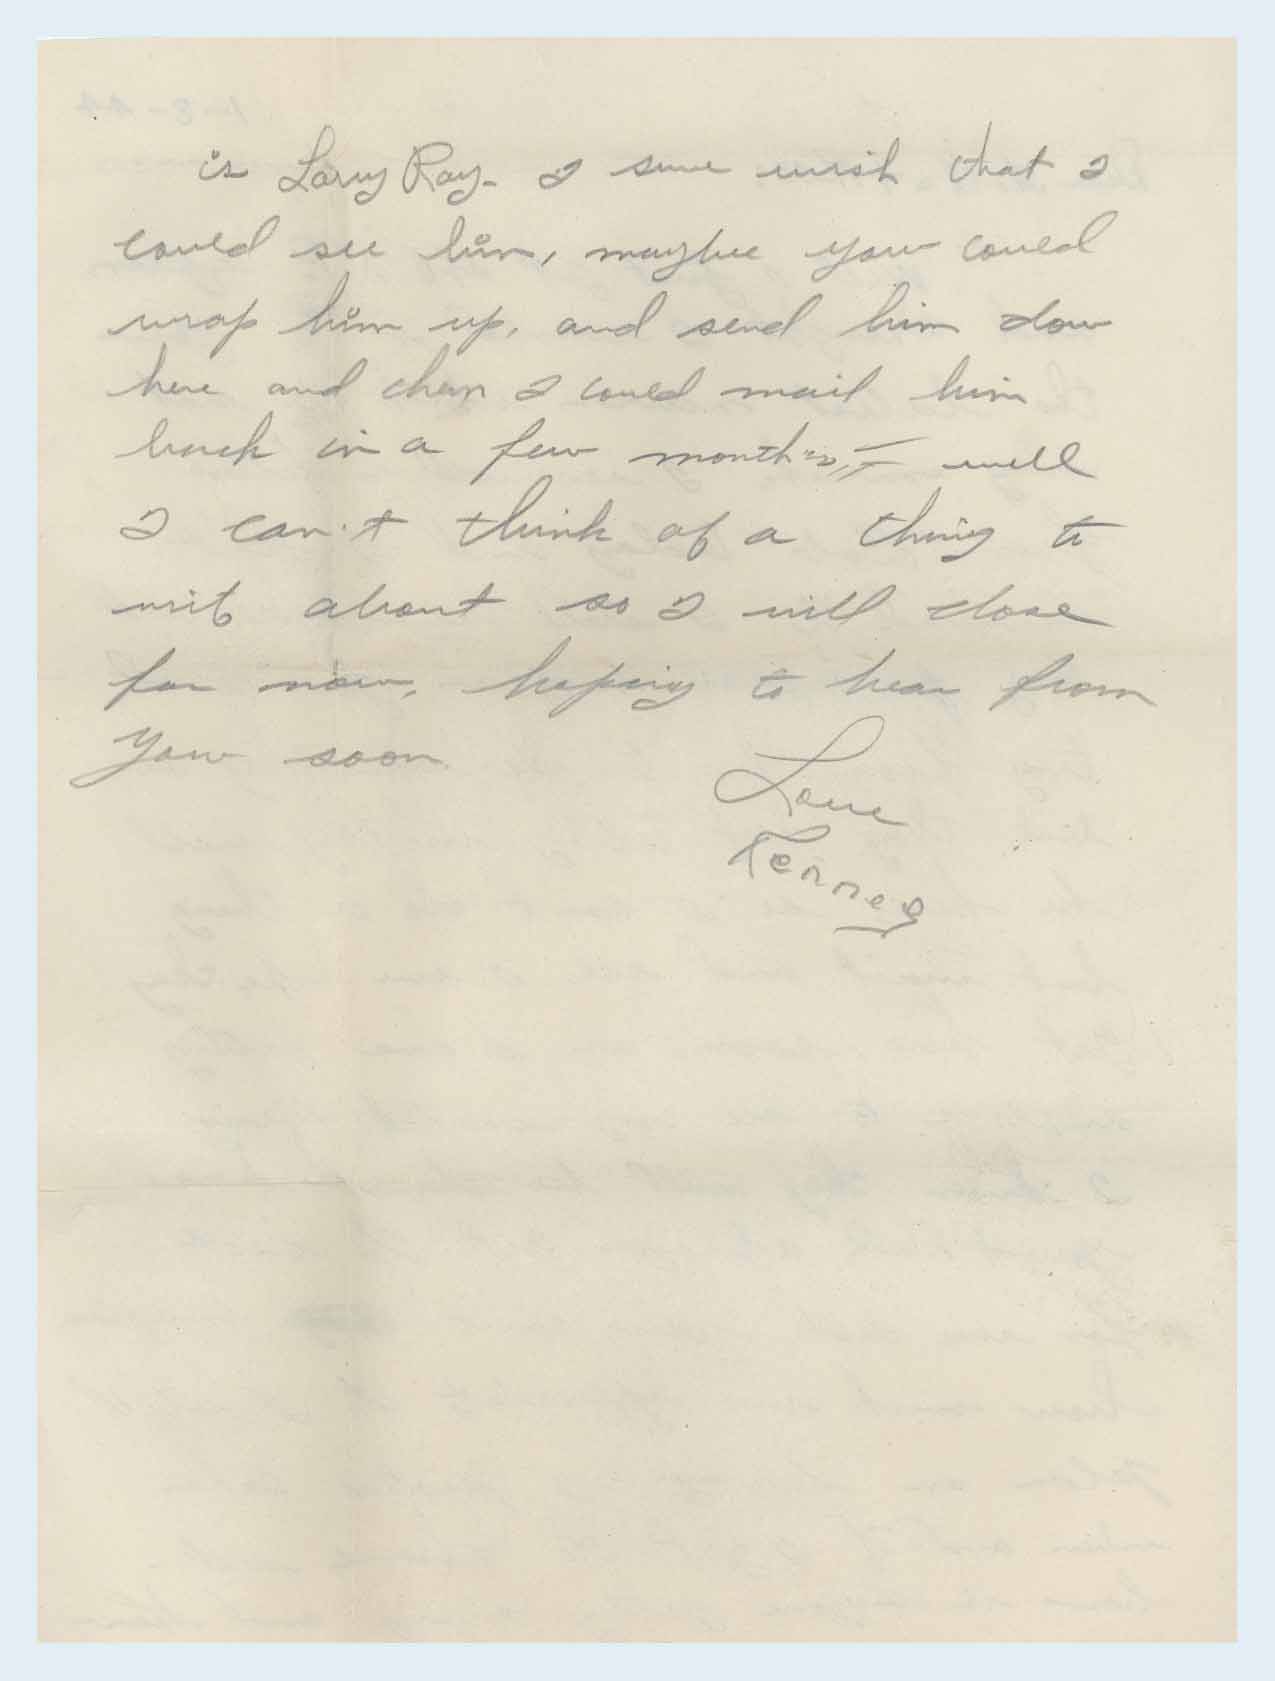 is Larry Ray. I sure wish that I
could see him, maybee you could
wrap him up, and send him down
here and then I could mail him
back in a few months, well
I can't think of a thing to
writ about so I will close
for now, hoping to hear from
you soon.
Love
Kenneg